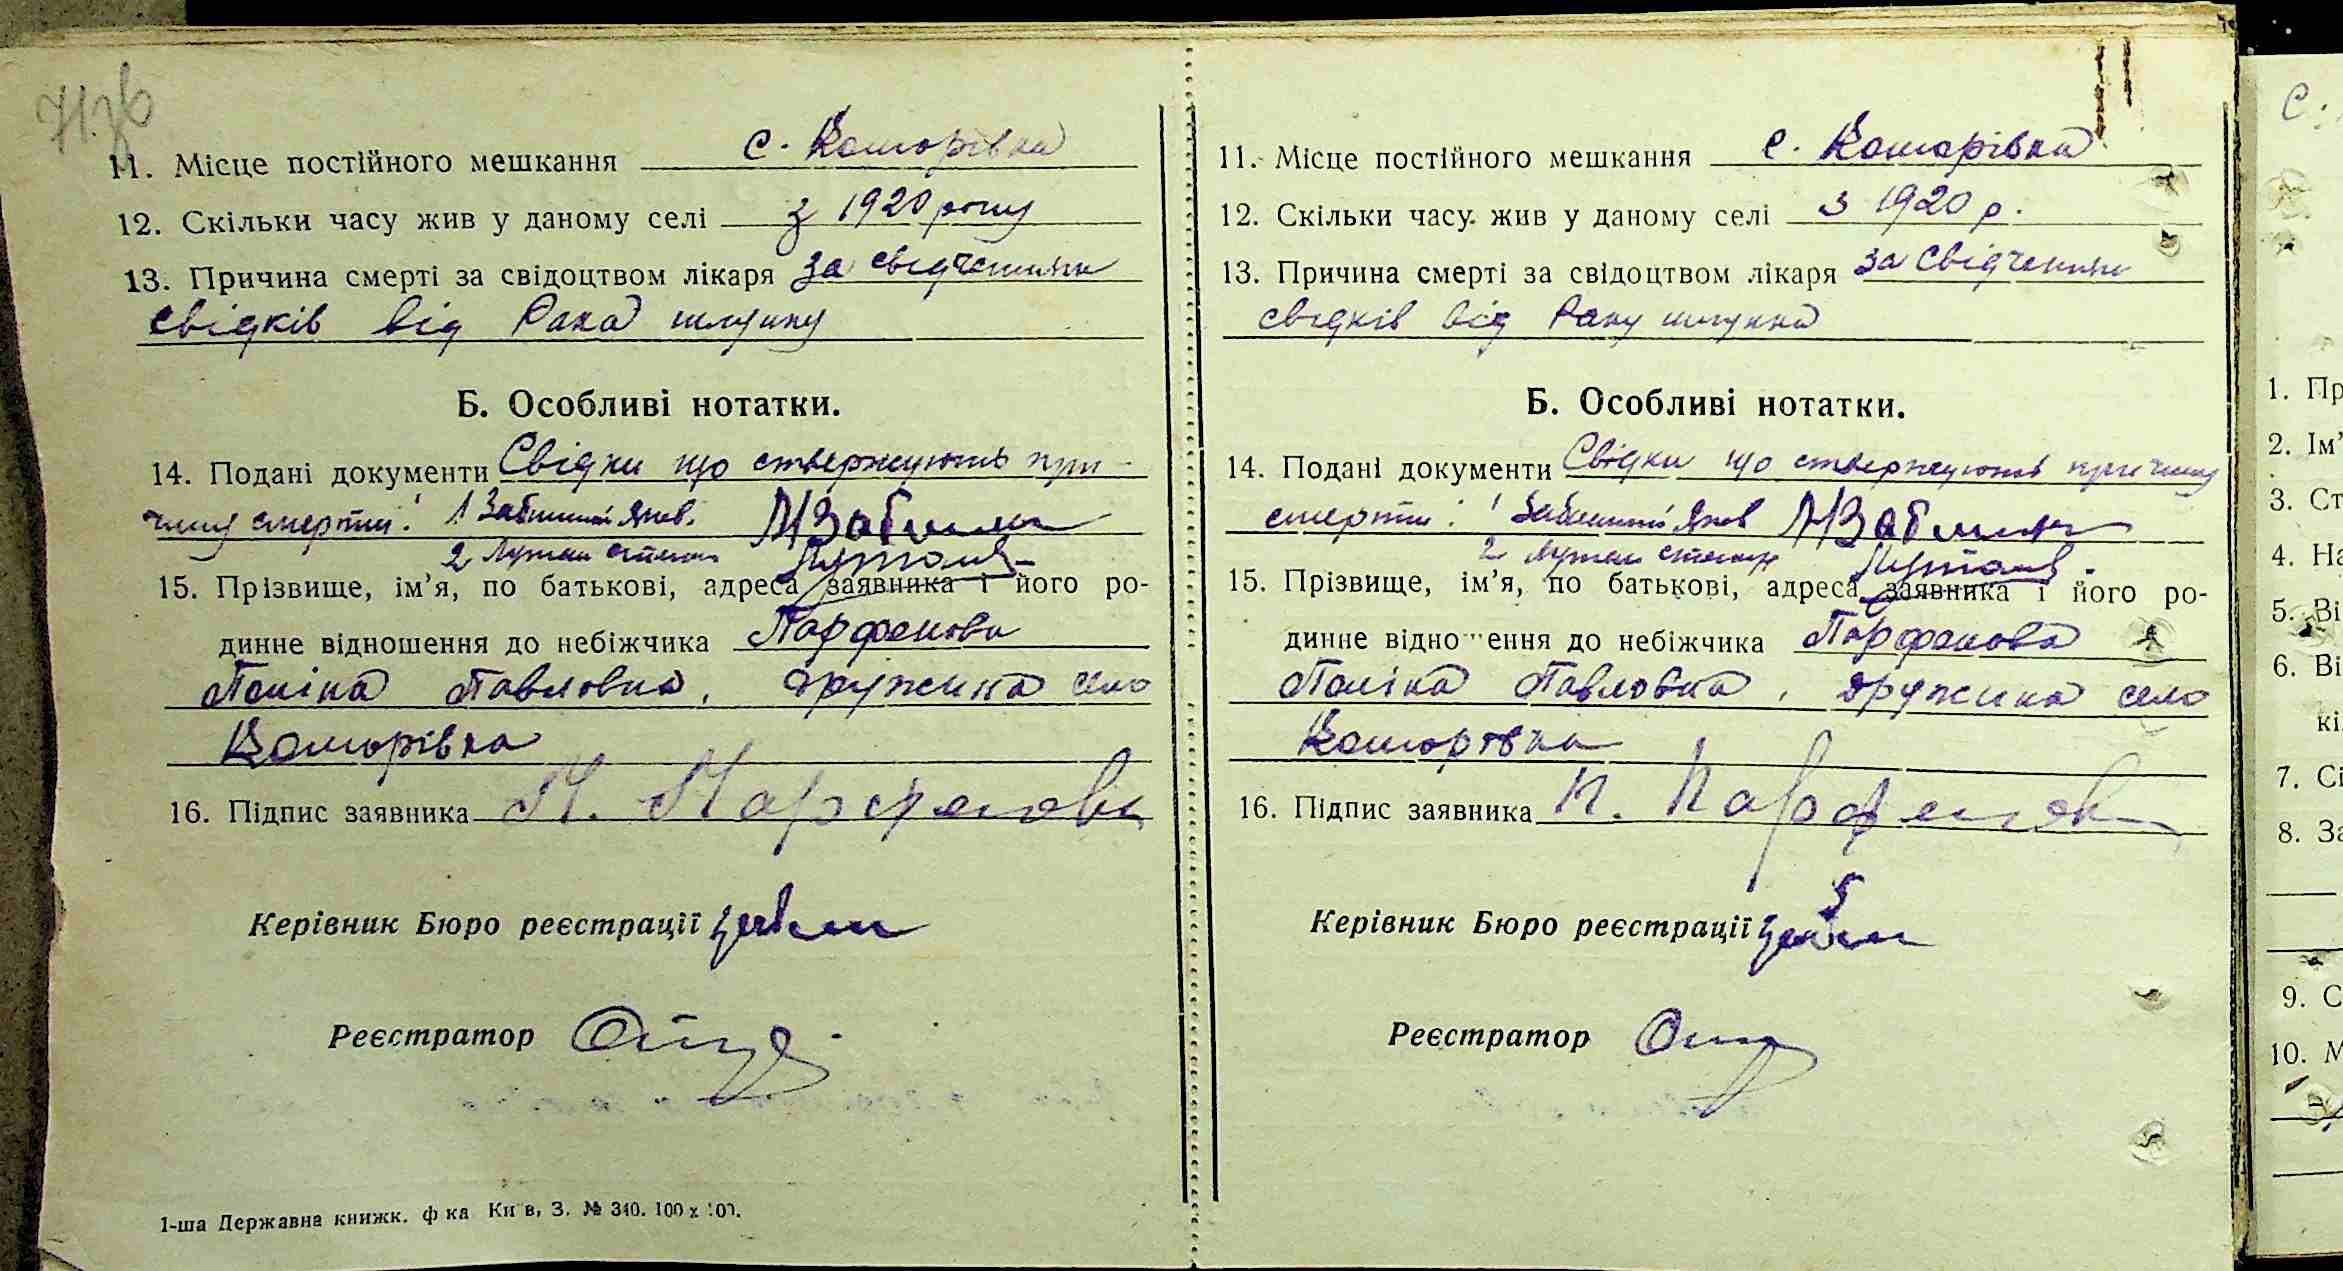 11. Місце постійного мешкання с. Коморівка
12. Скільки часу жив у даному селі з 1920 року
13. Причина смерті за свідоцтвом лікаря за свідченням
свідків від Рака шлунку
Б. Особливі нотатки.
14. Подані документи Свідки що стверджують при-
чину смерти: 1 Яків. МЗабіян
2
15. Прізвище, ім'я, по батькові, адреса заявника і його ро-
динне відношення до небіжчика Парфенова
Поліна Павловна, дружина село
Коморівка
16. Підпис заявника П. Парфенова
Керівник Бюро реєстрації
Реєстратор
1-ша Державна книжк. ф-ка Київ, З. № 340. 100 х 100.
11. Місце постійного мешкання с. Коморівка
12. Скільки часу жив у даному селі з 1920 р.
13. Причина смерті за свідоцтвом лікаря за свідченням
свідків від Раку шлунка
Б. Особливі нотатки.
14. Подані документи Свідки що стверджують причину
смерти: 1 Яків
2
15. Прізвище, ім'я, по батькові, адреса заявника і його ро-
динне відношення до небіжчика Парфенова
Поліна Павловна, дружина село
Коморівка
16. Підпис заявника П. Парфенова
Керівник Бюро реєстрації
Реєстратор
С.
1. Пр
2. Ім'
3. Ст
4. На
5. Ві
6. Ві
кі
7. Сі
8. За
9. С
10. М